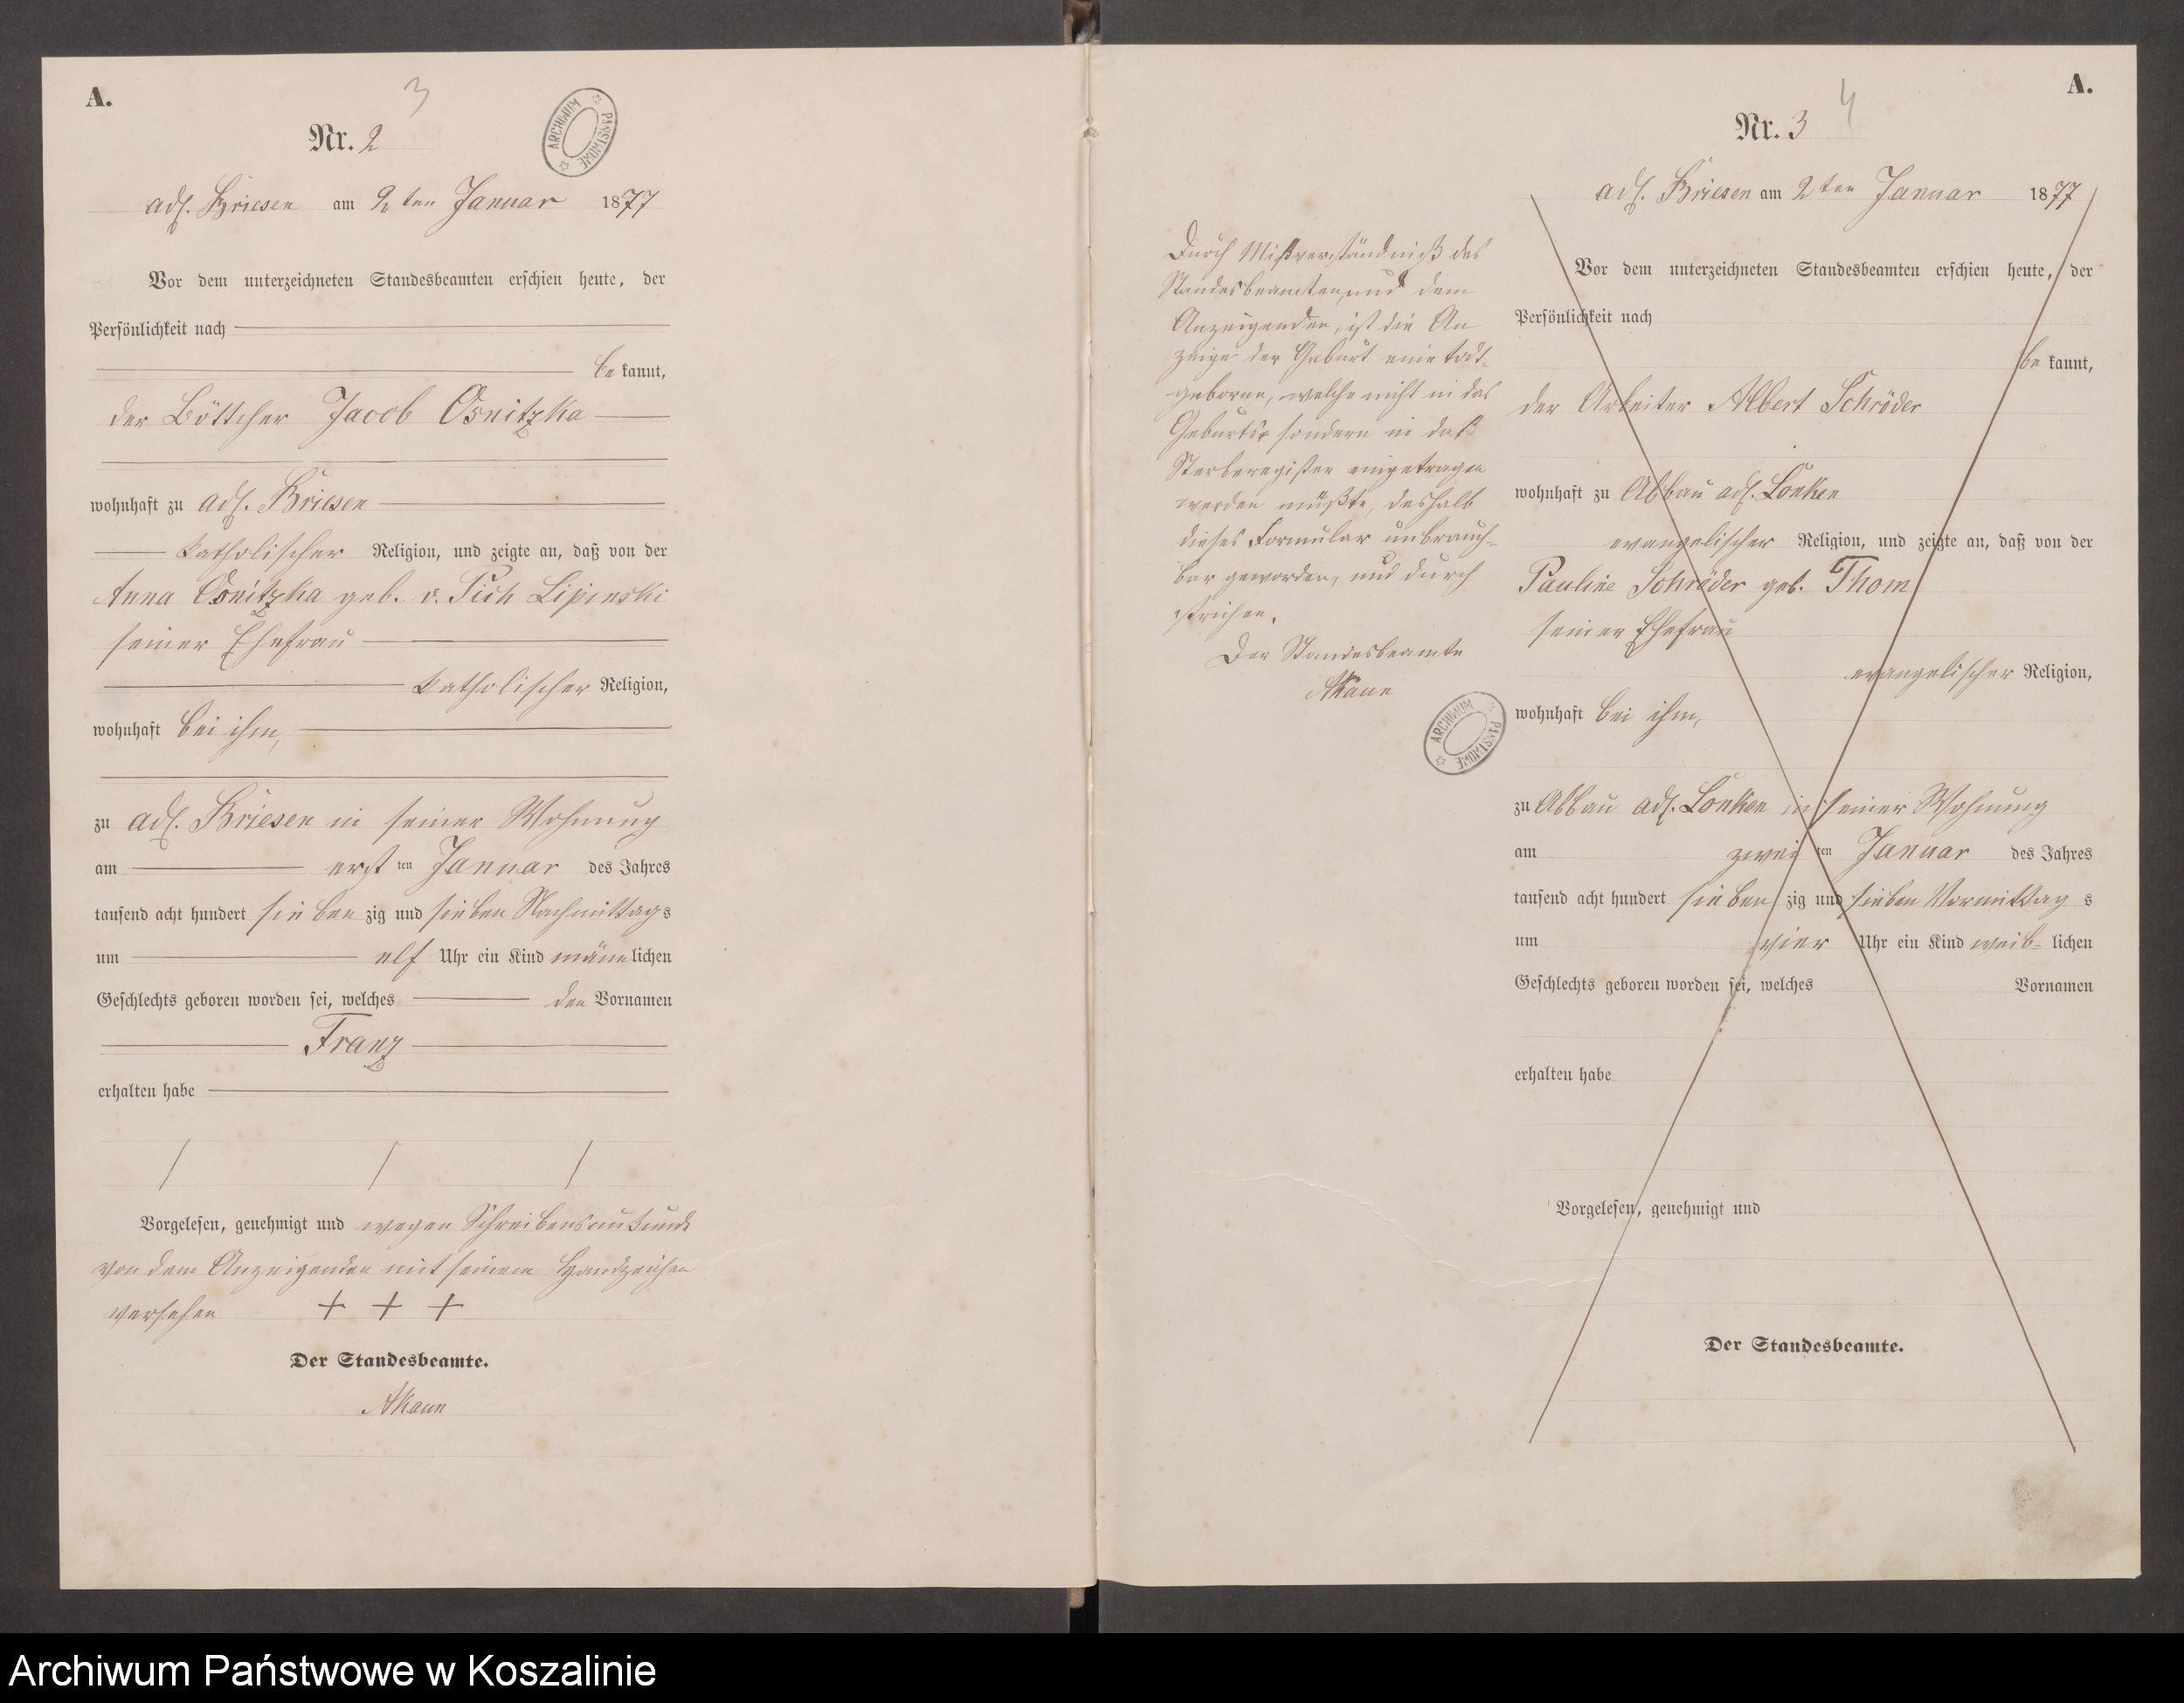 A.
3
Nr. 2
ARCHIWUM PAŃSTWOWE
adl. Briesen am 2 ten Januar 1877
Vor dem unterzeichneten Standesbeamten erschien heute, der
Persönlichkeit nach
be kannt,
der Böttcher Jacob Osnitzka
wohnhaft zu adl. Briesen
katholischer Religion, und zeigte an, daß von der
Anna Osnitzka geb. v. Pich Lipinski
seiner Ehefrau
katholischer Religion,
wohnhaft bei ihm,
zu adl. Briesen in seiner Wohnung
am erst ten Januar des Jahres
tausend acht hundert sieben zig und sieben Nachmittags
um elf Uhr ein Kind männlichen
Geschlechts geboren worden sei, welches den Vornamen
Franz
erhalten habe
Vorgelesen, genehmigt und wegen Schreibensunkunde
von dem Anzeigenden mit seinem Handzeichen
versehen + + +
Der Standesbeamte.
AKaun
A.
4
Nr. 3
adl. Briesen am 2 ten Januar 1877
Durch Mißverständniß des
Standesbeamten, und dem
Anzeigenden, ist die An
zeige der Geburt eine todt-
geborne, welche nicht in das
Geburts- sondern in das
Sterberegister eingetragen
werden müßte, deshalb
dieses Formular unbrauch-
bar geworden, und durch
strichen.
Der Standesbeamte
AKaun
ARCHIWUM PAŃSTWOWE
Vor dem unterzeichneten Standesbeamten erschien heute, der
Persönlichkeit nach
be kannt,
der Arbeiter Albert Schröder
wohnhaft zu Abbau adl. Lonken
evangelischer Religion, und zeigte an, daß von der
Pauline Schröder geb. Thom
seiner Ehefrau
evangelischer Religion,
wohnhaft bei ihm,
zu Abbau adl. Lonken in seiner Wohnung
am zwei ten Januar des Jahres
tausend acht hundert sieben zig und sieben Vormittag s
um vier Uhr ein Kind weib- lichen
Geschlechts geboren worden sei, welches Vornamen
erhalten habe
Vorgelesen, genehmigt und
Der Standesbeamte.
Archiwum Państwowe w Koszalinie